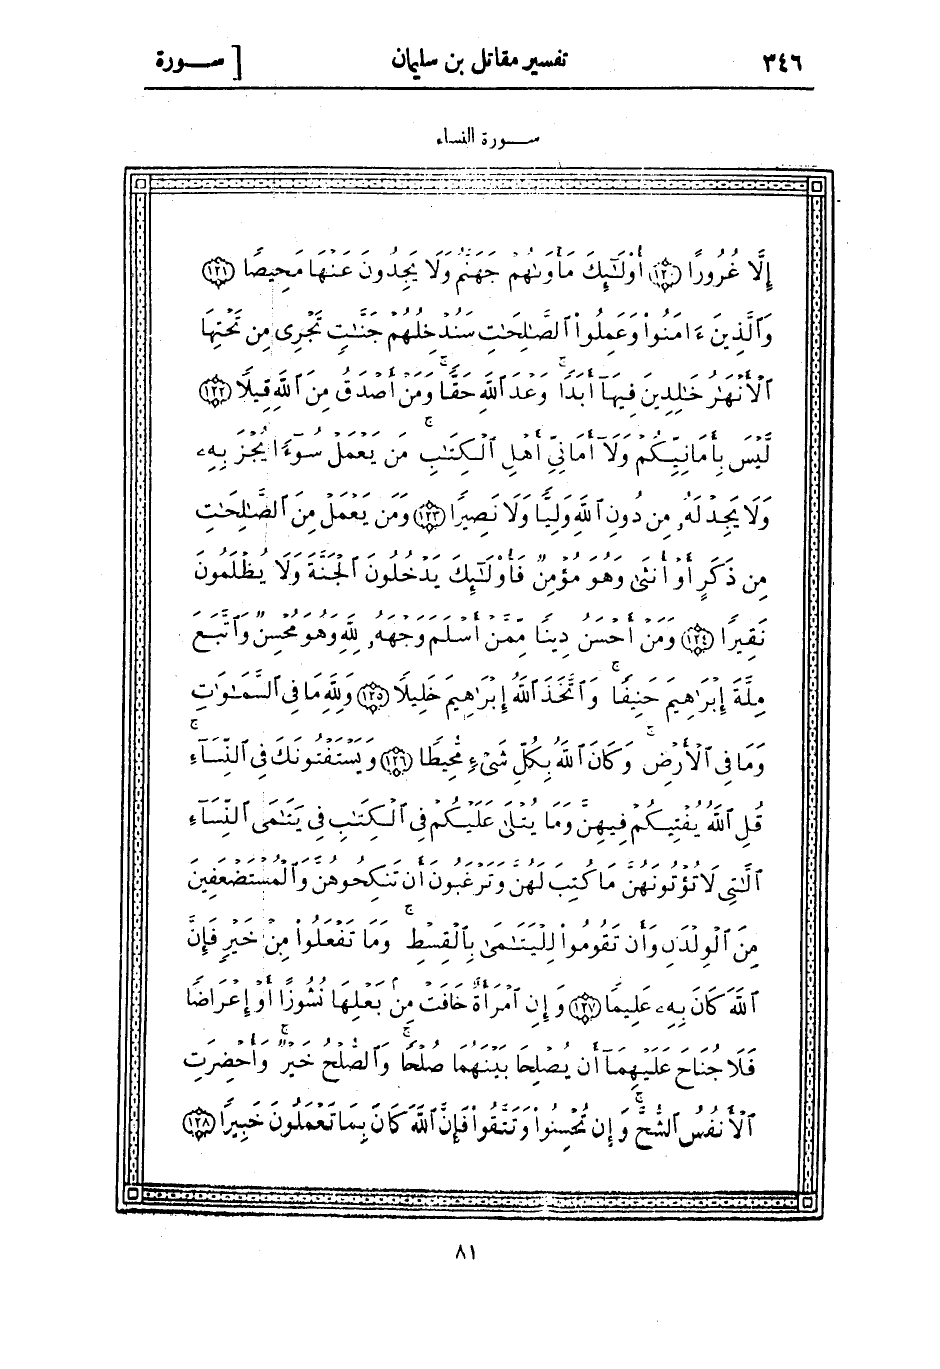 ٣٤٦ تفسير مقاتل بن سليمان [ ســورة
ســورة النساء
إِلَّا غُرُورًا ﴿١٢٠﴾ أُوْلَٰٓئِكَ مَأْوَىٰهُمْ جَهَنَّمُ وَلَا يَجِدُونَ عَنْهَا مَحِيصًا ﴿١٢١﴾
وَٱلَّذِينَ ءَامَنُوا۟ وَعَمِلُوا۟ ٱلصَّٰلِحَٰتِ سَنُدْخِلُهُمْ جَنَّٰتٍ تَجْرِى مِن تَحْتِهَا
ٱلْأَنْهَٰرُ خَٰلِدِينَ فِيهَآ أَبَدًا ۖ وَعْدَ ٱللَّهِ حَقًّا ۚ وَمَنْ أَصْدَقُ مِنَ ٱللَّهِ قِيلًا ﴿١٢٢﴾
لَّيْسَ بِأَمَانِيِّكُمْ وَلَآ أَمَانِىِّ أَهْلِ ٱلْكِتَٰبِ ۗ مَن يَعْمَلْ سُوٓءًا يُجْزَ بِهِۦ
وَلَا يَجِدْ لَهُۥ مِن دُونِ ٱللَّهِ وَلِيًّا وَلَا نَصِيرًا ﴿١٢٣﴾ وَمَن يَعْمَلْ مِنَ ٱلصَّٰلِحَٰتِ
مِن ذَكَرٍ أَوْ أُنثَىٰ وَهُوَ مُؤْمِنٌ فَأُو۟لَٰٓئِكَ يَدْخُلُونَ ٱلْجَنَّةَ وَلَا يُظْلَمُونَ
نَقِيرًا ﴿١٢٤﴾ وَمَنْ أَحْسَنُ دِينًا مِّمَّنْ أَسْلَمَ وَجْهَهُۥ لِلَّهِ وَهُوَ مُحْسِنٌ وَٱتَّبَعَ
مِلَّةَ إِبْرَٰهِيمَ حَنِيفًا ۗ وَٱتَّخَذَ ٱللَّهُ إِبْرَٰهِيمَ خَلِيلًا ﴿١٢٥﴾ وَلِلَّهِ مَا فِى ٱلسَّمَٰوَٰتِ
وَمَا فِى ٱلْأَرْضِ ۚ وَكَانَ ٱللَّهُ بِكُلِّ شَىْءٍ مُّحِيطًا ﴿١٢٦﴾ وَيَسْتَفْتُونَكَ فِى ٱلنِّسَآءِ ۖ
قُلِ ٱللَّهُ يُفْتِيكُمْ فِيهِنَّ وَمَا يُتْلَىٰ عَلَيْكُمْ فِى ٱلْكِتَٰبِ فِى يَتَٰمَى ٱلنِّسَآءِ
ٱلَّٰتِى لَا تُؤْتُونَهُنَّ مَا كُتِبَ لَهُنَّ وَتَرْغَبُونَ أَن تَنكِحُوهُنَّ وَٱلْمُسْتَضْعَفِينَ
مِنَ ٱلْوِلْدَٰنِ وَأَن تَقُومُوا۟ لِلْيَتَٰمَىٰ بِٱلْقِسْطِ ۚ وَمَا تَفْعَلُوا۟ مِنْ خَيْرٍ فَإِنَّ
ٱللَّهَ كَانَ بِهِۦ عَلِيمًا ﴿١٢٧﴾ وَإِنِ ٱمْرَأَةٌ خَافَتْ مِنۢ بَعْلِهَا نُشُوزًا أَوْ إِعْرَاضًا
فَلَا جُنَاحَ عَلَيْهِمَآ أَن يُصْلِحَا بَيْنَهُمَا صُلْحًا ۚ وَٱلصُّلْحُ خَيْرٌ ۗ وَأُحْضِرَتِ
ٱلْأَنفُسُ ٱلشُّحَّ ۚ وَإِن تُحْسِنُوا۟ وَتَتَّقُوا۟ فَإِنَّ ٱللَّهَ كَانَ بِمَا تَعْمَلُونَ خَبِيرًا ﴿١٢٨﴾
٨١